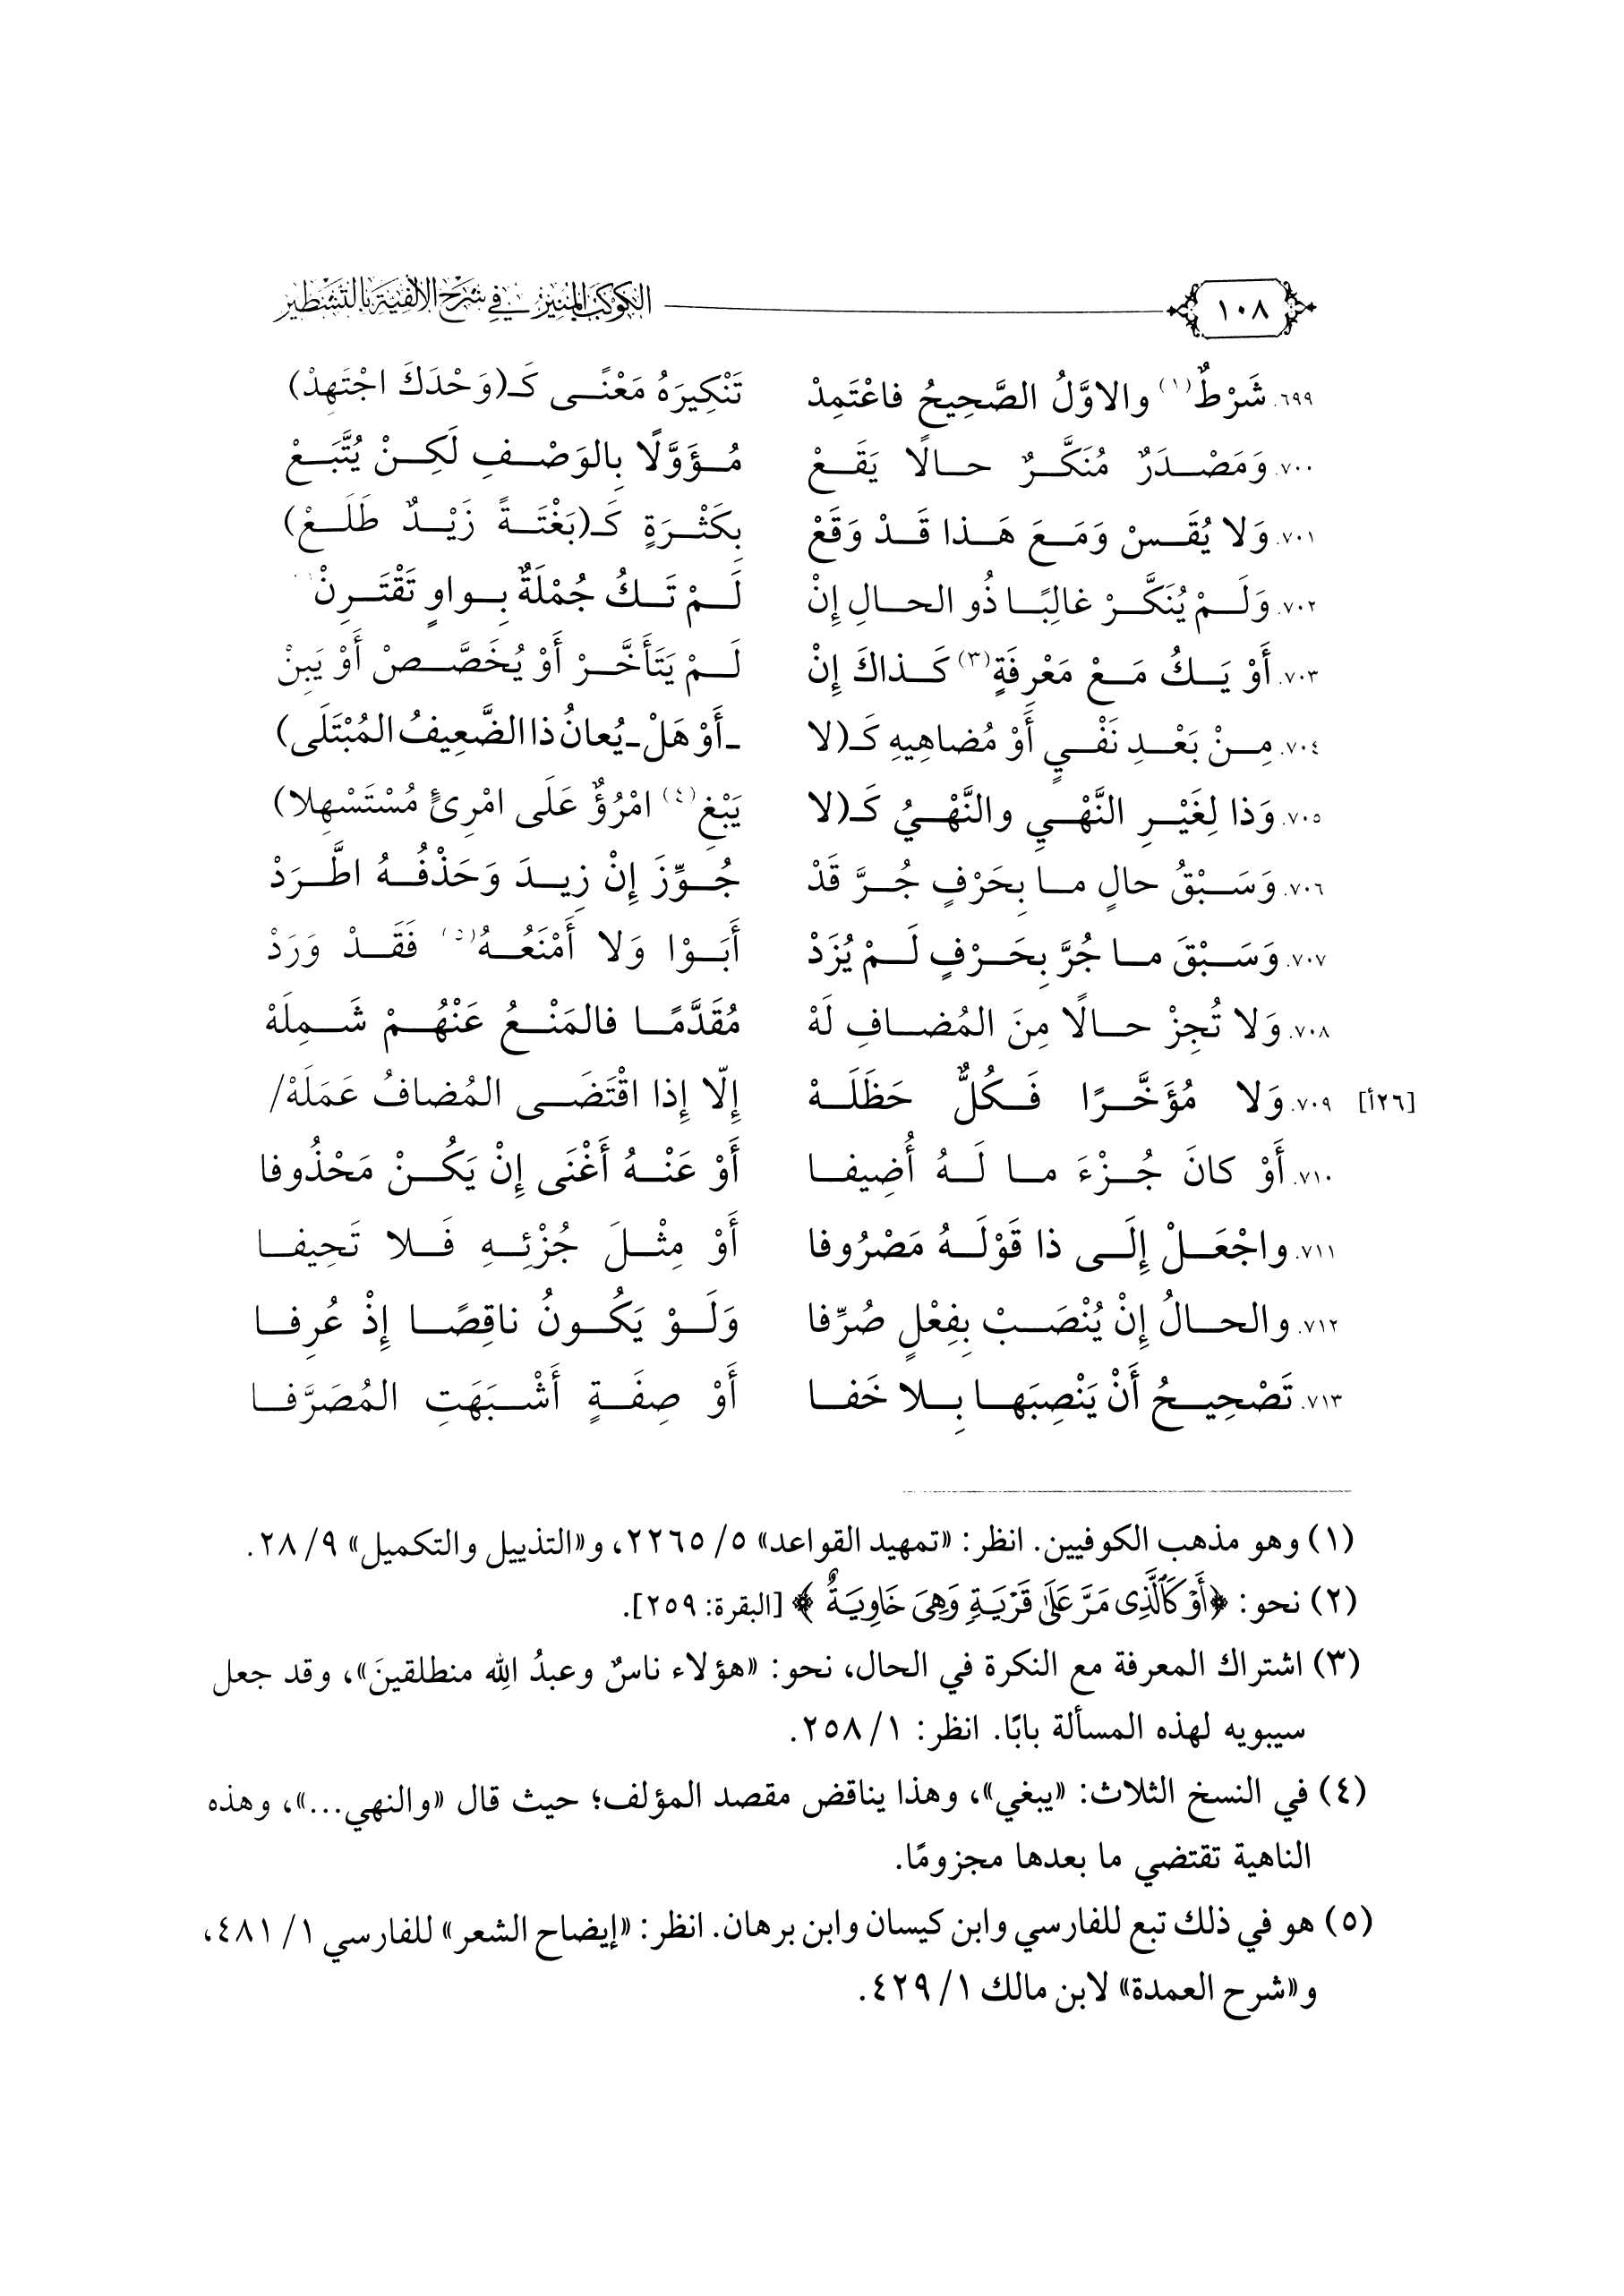 ١٠٨ الكوكب المنير في شرح الألفية بالتشطير
٦٩٩. شَرْطٌ(١) والاوَّلُ الصَّحِيحُ فاعْتَمِدْ تَنْكِيرَهُ مَعْنًى كَـ(وَحْدَكَ اجْتَهِدْ)
٧٠٠. وَمَصْدَرٌ مُنَكَّرٌ حالًا يَقَعْ مُؤَوَّلًا بِالوَصْفِ لَكِنْ يُتَّبَعْ
٧٠١. وَلا يُقَسْ وَمَعَ هَذا قَدْ وَقَعْ بِكَثْرَةٍ كَـ(بَغْتَةً زَيْدٌ طَلَعْ)
٧٠٢. وَلَمْ يُنَكَّرْ غالِبًا ذُو الحالِ إِنْ لَمْ تَكُ جُمْلَةٌ بِواوٍ تَقْتَرِنْ
٧٠٣. أَوْ يَكُ مَعْ مَعْرِفَةٍ(٣) كَذاكَ إِنْ لَمْ يَتَأَخَّرْ أَوْ يُخَصَّصْ أَوْ يَبِنْ
٧٠٤. مِنْ بَعْدِ نَفْيٍ أَوْ مُضاهِيهِ كَـ(لا ـ أَوْ هَلْ ـ يُعانُ ذا الضَّعِيفُ المُبْتَلَى)
٧٠٥. وَذا لِغَيْرِ النَّهْيِ والنَّهْيُ كَـ(لا يَبْغِ(٤) امْرُؤٌ عَلَى امْرِئٍ مُسْتَسْهِلا)
٧٠٦. وَسَبْقُ حالٍ ما بِحَرْفٍ جُرَّ قَدْ جُوِّزَ إِنْ زِيدَ وَحَذْفُهُ اطَّرَدْ
٧٠٧. وَسَبْقَ ما جُرَّ بِحَرْفٍ لَمْ يُزَدْ أَبَوْا وَلا أَمْنَعُهُ(٥) فَقَدْ وَرَدْ
٧٠٨. وَلا تُجِزْ حالًا مِنَ المُضافِ لَهْ مُقَدَّمًا فالمَنْعُ عَنْهُمْ شَمِلَهْ
[٢٦أ] ٧٠٩. وَلا مُؤَخَّرًا فَكُلٌّ حَظَلَهْ إِلّا إِذا اقْتَضَى المُضافُ عَمَلَهْ/
٧١٠. أَوْ كانَ جُزْءَ ما لَهُ أُضِيفا أَوْ عَنْهُ أَغْنَى إِنْ يَكُنْ مَحْذُوفا
٧١١. واجْعَلْ إِلَى ذا قَوْلَهُ مَصْرُوفا أَوْ مِثْلَ جُزْئِهِ فَلا تَحِيفا
٧١٢. والحالُ إِنْ يُنْصَبْ بِفِعْلٍ صُرِّفا وَلَوْ يَكُونُ ناقِصًا إِذْ عُرِفا
٧١٣. تَصْحِيحُ أَنْ يَنْصِبَها بِلا خَفا أَوْ صِفَةٍ أَشْبَهَتِ المُصَرَّفا
(١) وهو مذهب الكوفيين. انظر: «تمهيد القواعد» ٥/ ٢٢٦٥، و«التذييل والتكميل» ٩/ ٢٨.
(٢) نحو: ﴿أَوْ كَٱلَّذِى مَرَّ عَلَىٰ قَرْيَةٍ وَهِىَ خَاوِيَةٌ﴾ [البقرة: ٢٥٩].
(٣) اشتراك المعرفة مع النكرة في الحال، نحو: «هؤلاء ناسٌ وعبدُ الله منطلقينَ»، وقد جعل
سيبويه لهذه المسألة بابًا. انظر: ١/ ٢٥٨.
(٤) في النسخ الثلاث: «يبغي»، وهذا يناقض مقصد المؤلف؛ حيث قال «والنهي...»، وهذه
الناهية تقتضي ما بعدها مجزومًا.
(٥) هو في ذلك تبع للفارسي وابن كيسان وابن برهان. انظر: «إيضاح الشعر» للفارسي ١/ ٤٨١،
و«شرح العمدة» لابن مالك ١/ ٤٢٩.